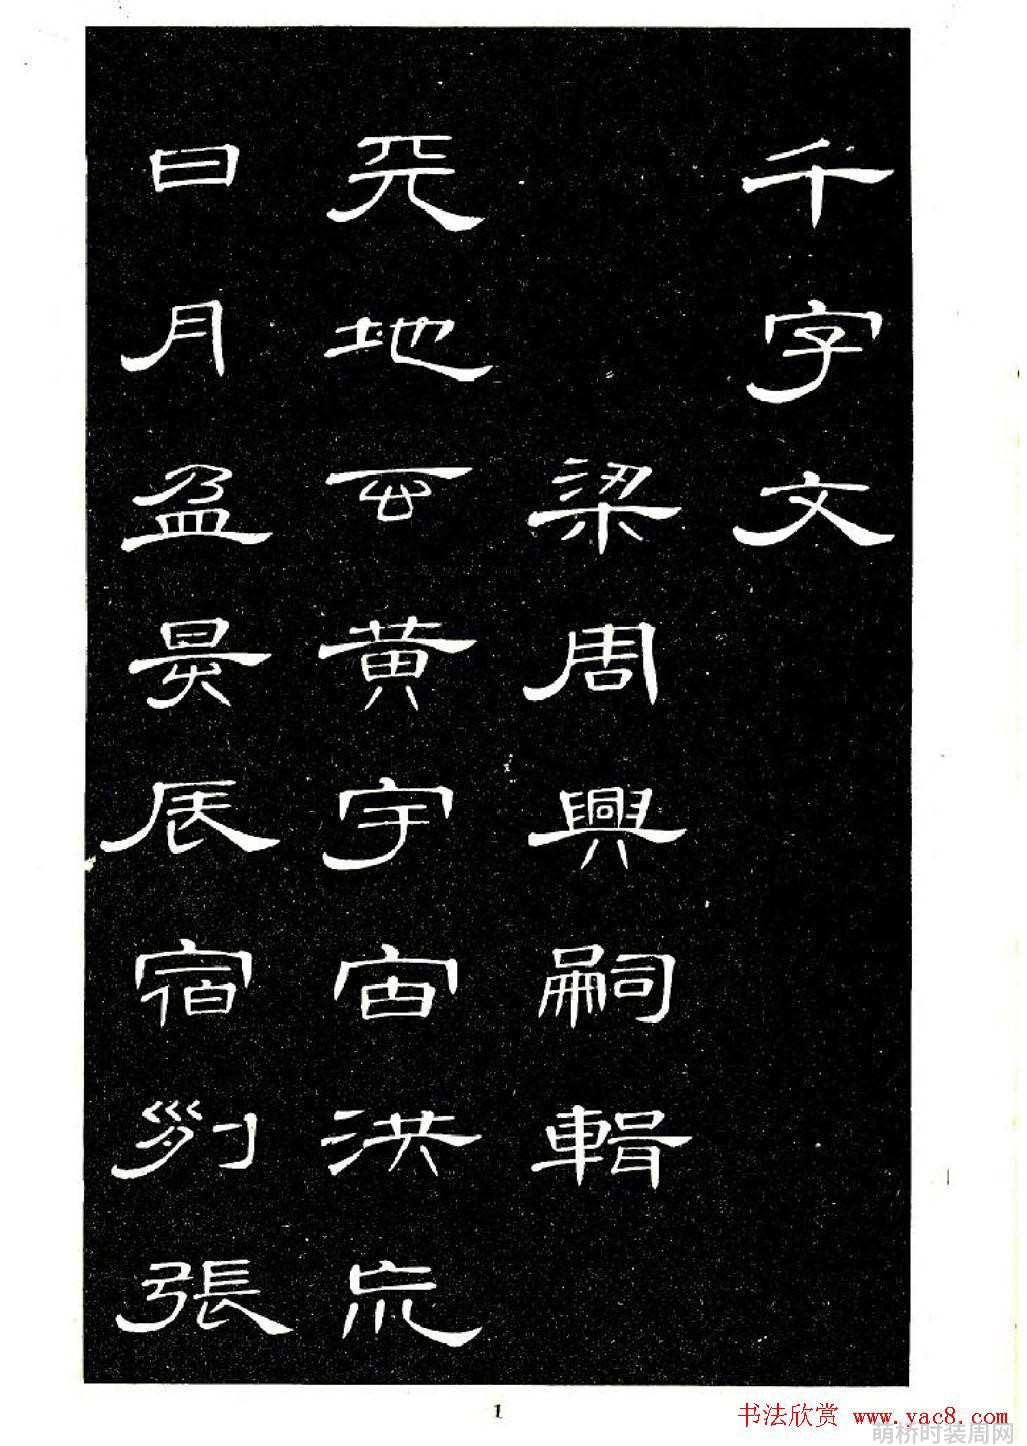 千字文
梁周興嗣輯
天地玄黃宇宙洪荒
日月盈昃辰宿列張
1
书法欣赏 www.yac8.com
萌桥时装周网